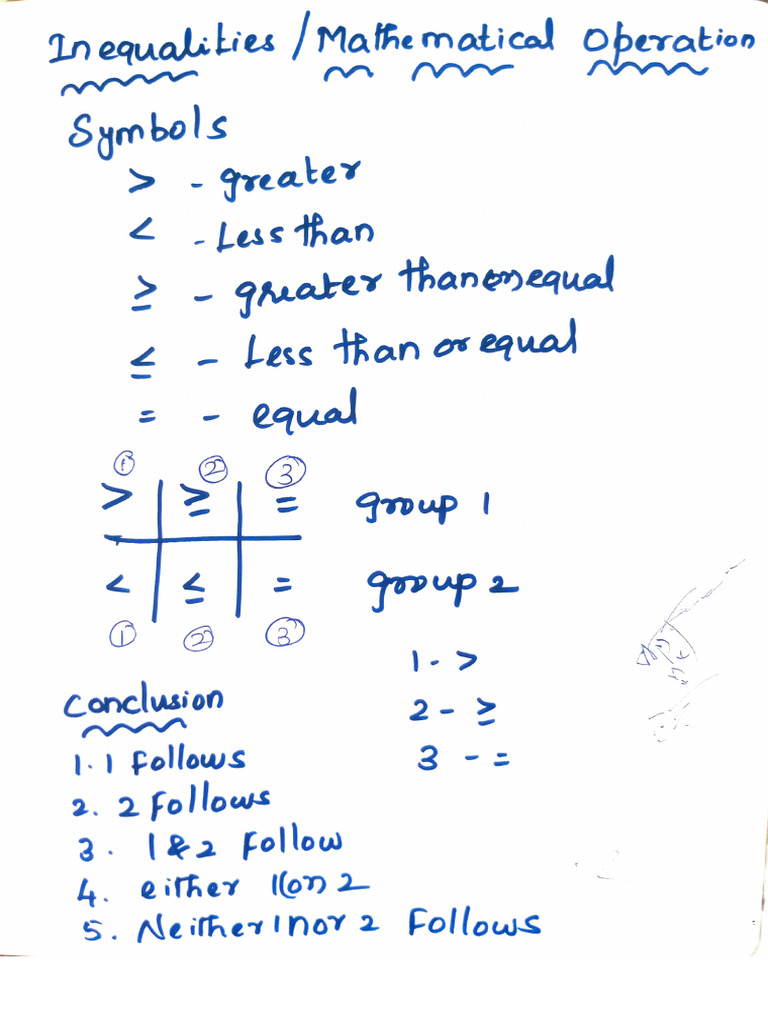 Inequalities / Mathematical Operation
Symbols
> - greater
< - Less than
≥ - greater than (or) equal
≤ - Less than or equal
= - equal
① ② ③
> ≥ = group 1
< ≤ = group 2
① ② ③
1 - >
2 - ≥
3 - =
Conclusion
1. 1 follows
2. 2 follows
3. 1 & 2 Follow
4. either 1 (or) 2
5. Neither 1 nor 2 Follows